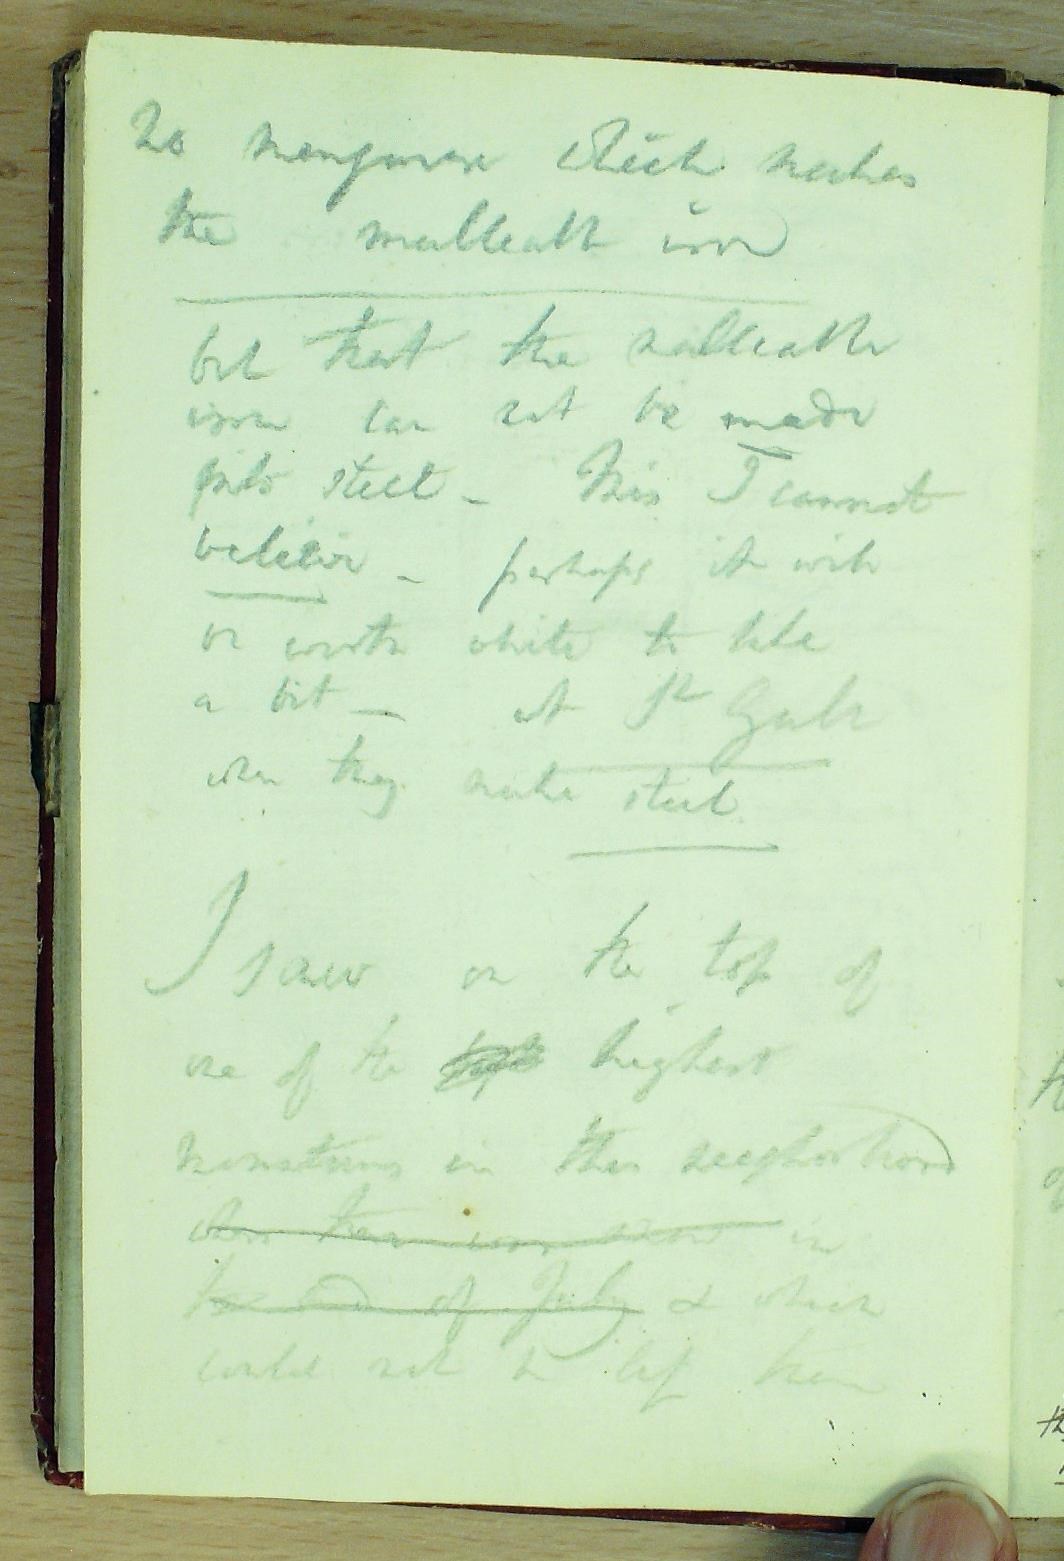 no manganese which makes
the malleable iron
but that the malleable
iron can not be made
into steel _ This I cannot
believe _ perhaps it will
be worth while to take
a bit _ at St
when they make steel
I saw on the top of
one of the highest
mountains in this neighborhood
when there was snow in
the end of July & which
could not be less than